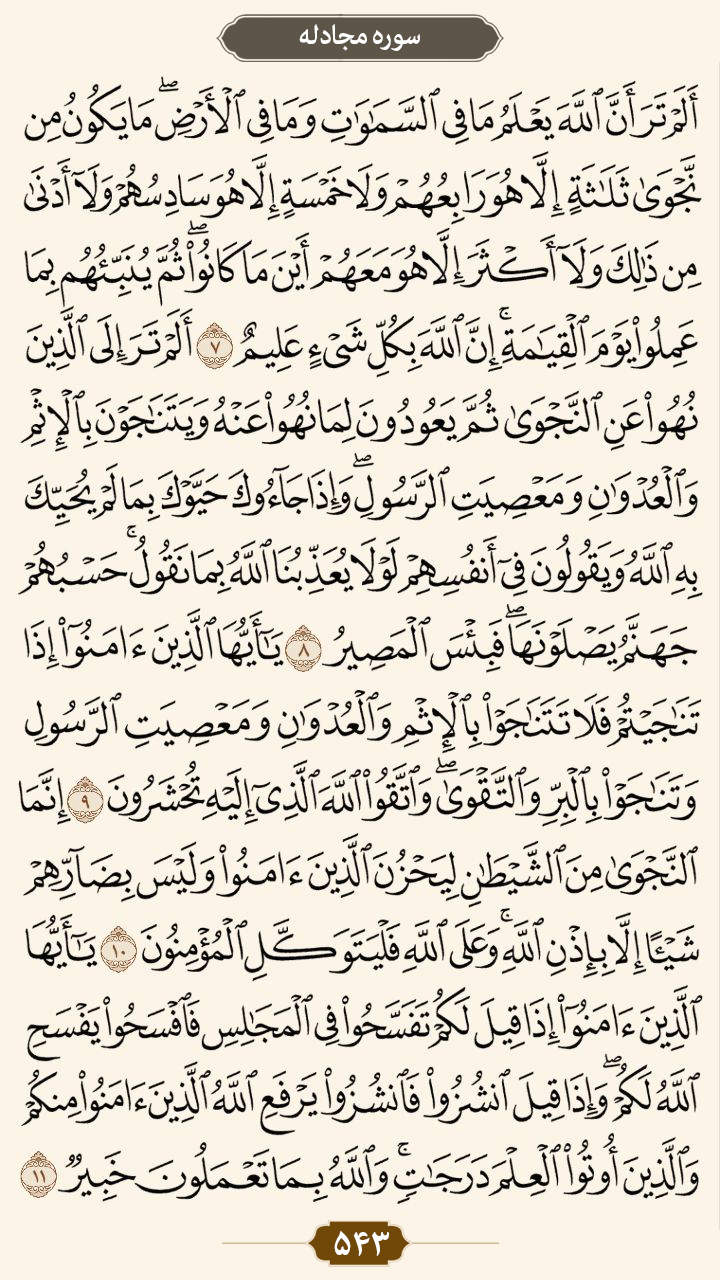 سوره مجادله
أَلَمْ تَرَ أَنَّ ٱللَّهَ يَعْلَمُ مَا فِى ٱلسَّمَـٰوَٰتِ وَمَا فِى ٱلْأَرْضِ ۖ مَا يَكُونُ مِن
نَّجْوَىٰ ثَلَـٰثَةٍ إِلَّا هُوَ رَابِعُهُمْ وَلَا خَمْسَةٍ إِلَّا هُوَ سَادِسُهُمْ وَلَآ أَدْنَىٰ
مِن ذَٰلِكَ وَلَآ أَكْثَرَ إِلَّا هُوَ مَعَهُمْ أَيْنَ مَا كَانُوا۟ ۖ ثُمَّ يُنَبِّئُهُم بِمَا
عَمِلُوا۟ يَوْمَ ٱلْقِيَـٰمَةِ ۚ إِنَّ ٱللَّهَ بِكُلِّ شَىْءٍ عَلِيمٌ ٧ أَلَمْ تَرَ إِلَى ٱلَّذِينَ
نُهُوا۟ عَنِ ٱلنَّجْوَىٰ ثُمَّ يَعُودُونَ لِمَا نُهُوا۟ عَنْهُ وَيَتَنَـٰجَوْنَ بِٱلْإِثْمِ
وَٱلْعُدْوَٰنِ وَمَعْصِيَتِ ٱلرَّسُولِ ۖ وَإِذَا جَآءُوكَ حَيَّوْكَ بِمَا لَمْ يُحَيِّكَ
بِهِ ٱللَّهُ وَيَقُولُونَ فِىٓ أَنفُسِهِمْ لَوْلَا يُعَذِّبُنَا ٱللَّهُ بِمَا نَقُولُ ۚ حَسْبُهُمْ
جَهَنَّمُ يَصْلَوْنَهَا ۖ فَبِئْسَ ٱلْمَصِيرُ ٨ يَـٰٓأَيُّهَا ٱلَّذِينَ ءَامَنُوٓا۟ إِذَا
تَنَـٰجَيْتُمْ فَلَا تَتَنَـٰجَوْا۟ بِٱلْإِثْمِ وَٱلْعُدْوَٰنِ وَمَعْصِيَتِ ٱلرَّسُولِ
وَتَنَـٰجَوْا۟ بِٱلْبِرِّ وَٱلتَّقْوَىٰ ۖ وَٱتَّقُوا۟ ٱللَّهَ ٱلَّذِىٓ إِلَيْهِ تُحْشَرُونَ ٩ إِنَّمَا
ٱلنَّجْوَىٰ مِنَ ٱلشَّيْطَـٰنِ لِيَحْزُنَ ٱلَّذِينَ ءَامَنُوا۟ وَلَيْسَ بِضَآرِّهِمْ
شَيْـًٔا إِلَّا بِإِذْنِ ٱللَّهِ ۚ وَعَلَى ٱللَّهِ فَلْيَتَوَكَّلِ ٱلْمُؤْمِنُونَ ١٠ يَـٰٓأَيُّهَا
ٱلَّذِينَ ءَامَنُوٓا۟ إِذَا قِيلَ لَكُمْ تَفَسَّحُوا۟ فِى ٱلْمَجَـٰلِسِ فَٱفْسَحُوا۟ يَفْسَحِ
ٱللَّهُ لَكُمْ ۖ وَإِذَا قِيلَ ٱنشُزُوا۟ فَٱنشُزُوا۟ يَرْفَعِ ٱللَّهُ ٱلَّذِينَ ءَامَنُوا۟ مِنكُمْ
وَٱلَّذِينَ أُوتُوا۟ ٱلْعِلْمَ دَرَجَـٰتٍ ۚ وَٱللَّهُ بِمَا تَعْمَلُونَ خَبِيرٌ ١١
۵۴۳